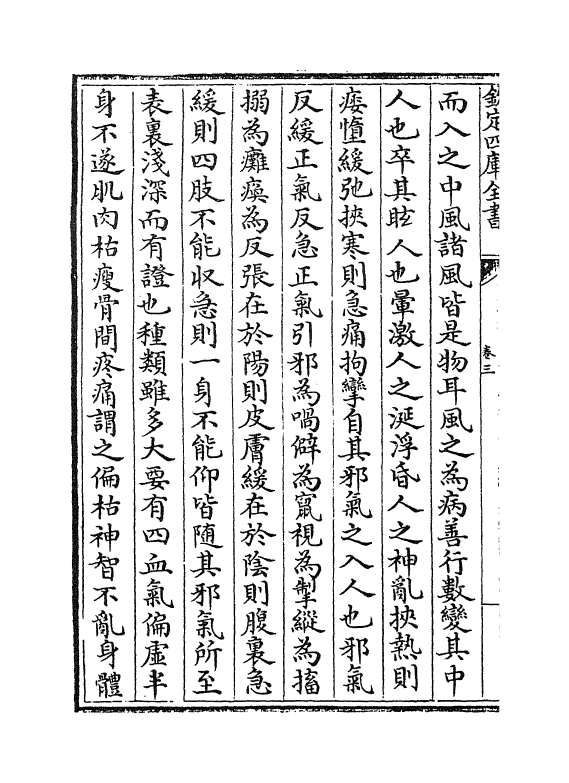 欽定四庫全書
卷三
而入之中風諸風皆是物耳風之為病善行數變其中
人也卒其眩人也暈激人之涎浮昏人之神亂挾熱則
痿惰緩弛挾寒則急痛拘攣自其邪氣之入人也邪氣
反緩正氣反急正氣引邪為喎僻為竄視為掣縱為搐
搦為癱瘓為反張在於陽則皮膚緩在於陰則腹裏急
緩則四肢不能収急則一身不能仰皆随其邪氣所至
表裏淺深而有證也種類雖多大要有四血氣偏虛半
身不遂肌肉枯瘦骨間疼痛謂之偏枯神智不亂身體